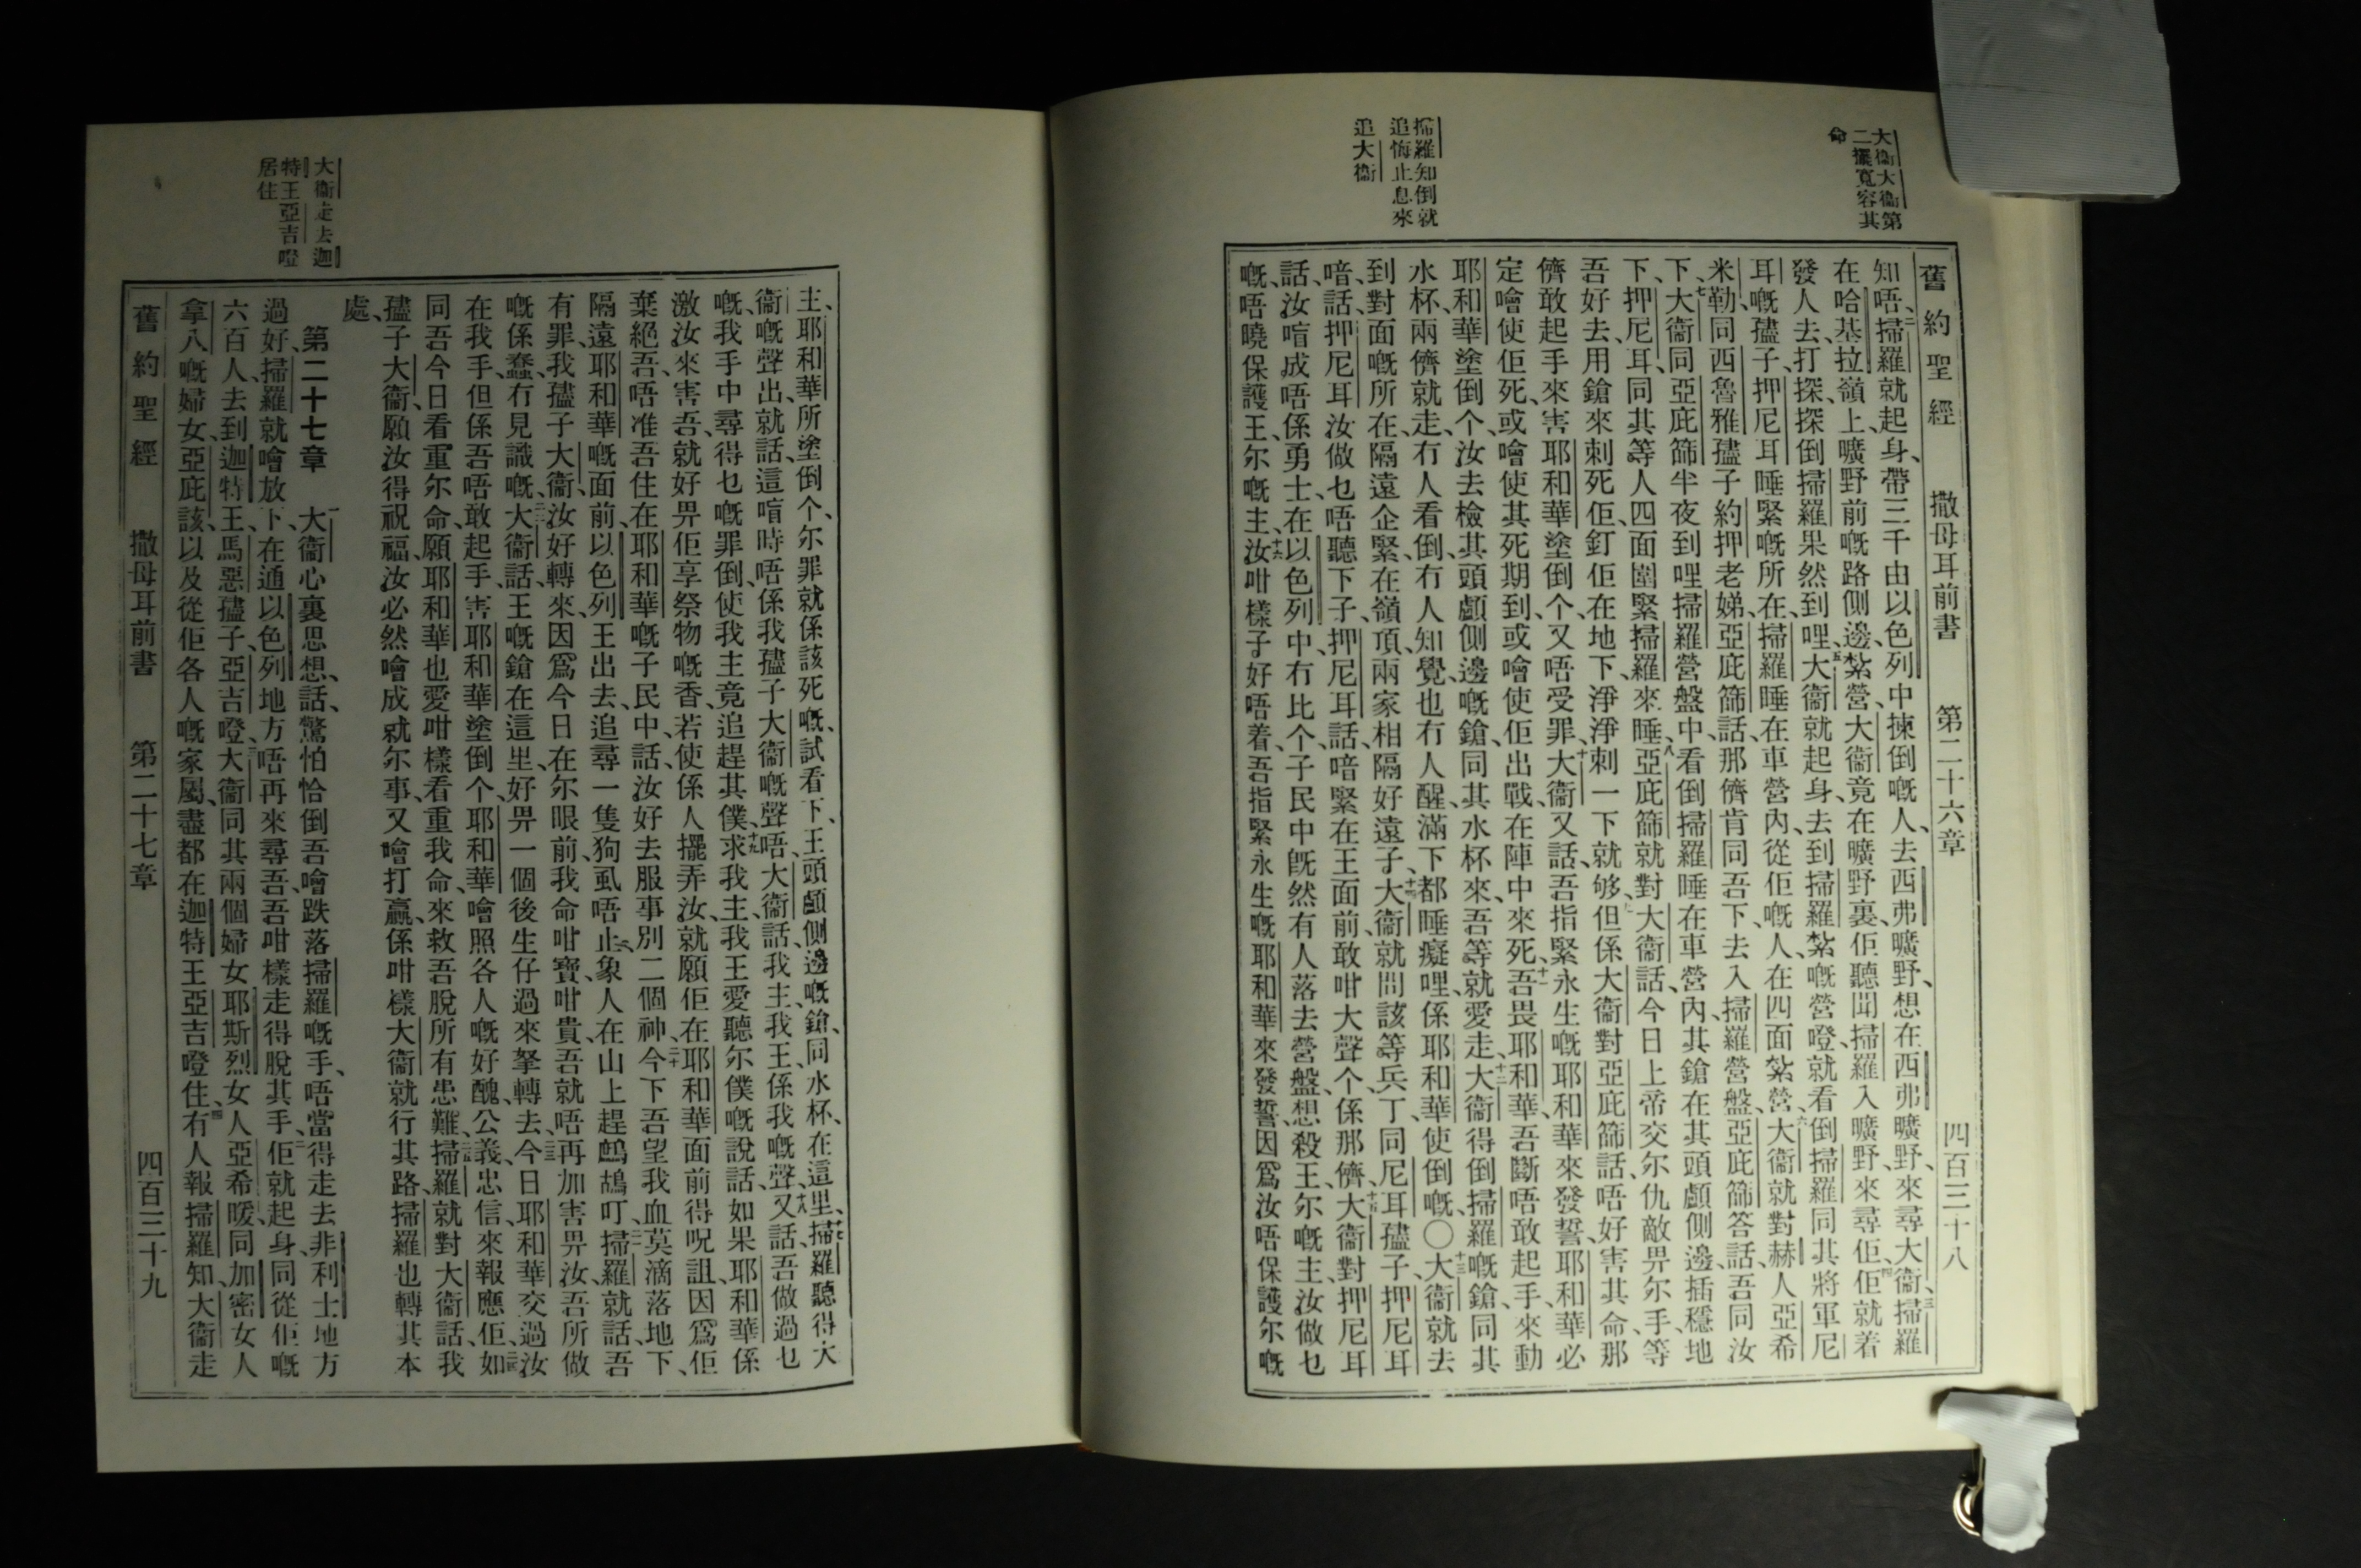 大衞大衞第
二擺寬容其
命
掃羅知倒就
追悔止息來
追大衞
舊約聖經 撒母耳前書 第二十六章 四百三十八
知唔、二掃羅就起身、帶三千由以色列中揀倒嘅人、去西弗曠野、想在西弗曠野、來尋大衞、三掃羅
在哈基拉嶺上、曠野前嘅路側邊、紮營、大衞竟在曠野裏、佢聽聞掃羅入曠野、來尋佢、四佢就着
發人去、打探、探倒掃羅果然到哩、五大衞就起身、去到掃羅紮嘅營、就看倒掃羅同其將軍尼
耳嘅孻子、押尼耳睡緊嘅所在、掃羅睡在車營內、從佢嘅人、在四面紮營、六大衞就對赫人亞希
米勒、同西魯雅孻子約押老娣、亞庇篩話、那儕肯同吾下、去入掃羅營盤、亞庇篩答話、吾同汝
下、七大衞同亞庇篩半夜到哩掃羅營盤中、看倒掃羅睡在車營內、其鎗在其頭顱側邊、插穩地
下、押尼耳、同其等人四面圍緊掃羅來睡、八亞庇篩就對大衞話、今日上帝交尔仇敵畀尔手、等
吾好去、用鎗來刺死佢、釘佢在地下、淨淨刺一下就够、九但係大衞對亞庇篩話、唔好害其命、那
儕敢起手來害耶和華塗倒个、又唔受罪、十大衞又話、吾指緊永生嘅耶和華來發誓、耶和華必
定噲使佢死、或噲使其死期到、或噲使佢出戰、在陣中來死、十一吾畏耶和華、吾斷唔敢起手、來動
耶和華塗倒个、汝去檢其頭顱側邊嘅鎗、同其水杯來、吾等就愛走、十二大衞得倒掃羅嘅鎗、同其
水杯、兩儕就走、冇人看倒、冇人知覺、也冇人醒、滿下都睡癡哩、係耶和華使倒嘅、〇十三大衞就去
到對面嘅所在、隔遠企緊、在嶺頂、兩家相隔好遠子、十四大衞就問該等兵丁、同尼耳孻子、押尼耳
喑話、押尼耳汝做乜唔聽下子、押尼耳話、喑緊在王面前、敢咁大聲个、係那儕、十五大衞對押尼耳
話、汝喑成唔係勇士、在以色列中、冇比个、子民中既然有人落去營盤、想殺王、尔嘅主、汝做乜
嘅、唔曉保護王、尔嘅主、十六汝咁樣子好唔着、吾指緊永生嘅耶和華來發誓、因爲汝唔保護尔嘅
主、耶和華所塗倒个、尔罪就係該死嘅、試看下、王頭顱側邊嘅鎗、同水杯、在這里、十七掃羅聽得大
衞嘅聲出、就話、這喑時唔係我孻子大衞嘅聲唔、大衞話、我主、我王、係我嘅聲、十八又話、吾做過乜
嘅、我手中尋得乜嘅罪倒、使我主竟追趕其僕、十九求我主、我王愛聽尔僕嘅說話、如果耶和華係
激汝來害吾、就好畀佢享祭物嘅香、若使係人擺弄汝、就願佢在耶和華面前得呪詛、因爲佢
棄絕吾、唔准吾住在耶和華嘅子民中、話、汝好去服事別二個神、二十今下吾望我血莫滴落地下、
隔遠耶和華嘅面前、以色列王出去、追尋一隻狗虱唔止、象人在山上趕鷓鴣叮、二一掃羅就話、吾
有罪、我孻子大衞、汝好轉來、因爲今日在尔眼前、我命咁寶、咁貴、吾就唔再加害畀汝、吾所做
嘅係蠢、冇見識嘅、二二大衞話、王嘅鎗在這里、好畀一個後生仔過來拏轉去、二三今日耶和華交過汝
在我手、但係吾唔敢起手、害耶和華塗倒个、耶和華噲照各人嘅好醜、公義、忠信、來報應佢、二四如
同吾今日看重尔命、願耶和華也愛咁樣看重我命、來救吾脫所有患難、二五掃羅就對大衞話、我
孻子大衞、願汝得祝福、汝必然噲成就尔事、又噲打贏、係咁樣大衞就行其路、掃羅也轉其本
處、
大衞走去迦
特王亞吉噔
居住
第二十七章 一大衞心裏思想、話、驚怕恰倒吾噲跌落掃羅嘅手、唔當得走去非利士地方
過好、掃羅就噲放下、在通以色列地方唔再來尋吾、吾咁樣走得脫其手、二佢就起身、同從佢嘅
六百人、去到迦特王、馬惡孻子、亞吉噔、三大衞同其兩個婦女、耶斯烈女人亞希暖、同加密女人
拿八嘅婦女、亞庇該、以及從佢各人嘅家屬、盡都在迦特王亞吉噔住、四有人報掃羅知、大衞走
舊約聖經 撒母耳前書 第二十七章 四百三十九